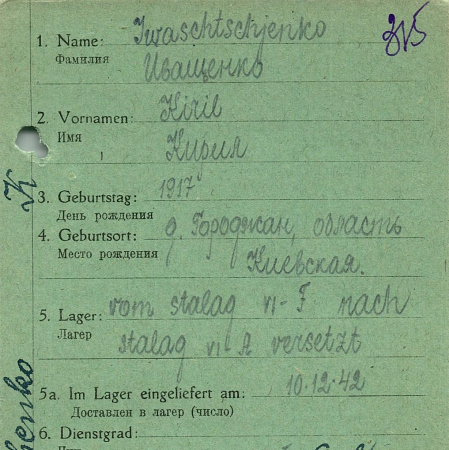 315
1. Name: Iwaschtschjenko
Фамилия Иващенко
2. Vornamen: Kiril
Имя
Кирил
3. Geburtstag: 1917
День рождения
4. Geburtsort: д. Городжан, область
Место рождения Киевская.
5. Lager: vom stalag VI-F nach
Лагер stalag VI-A versetzt
5a. Im Lager eingeliefert am: 10.12.42
Доставлен в лагер (число)
6. Dienstgrad: